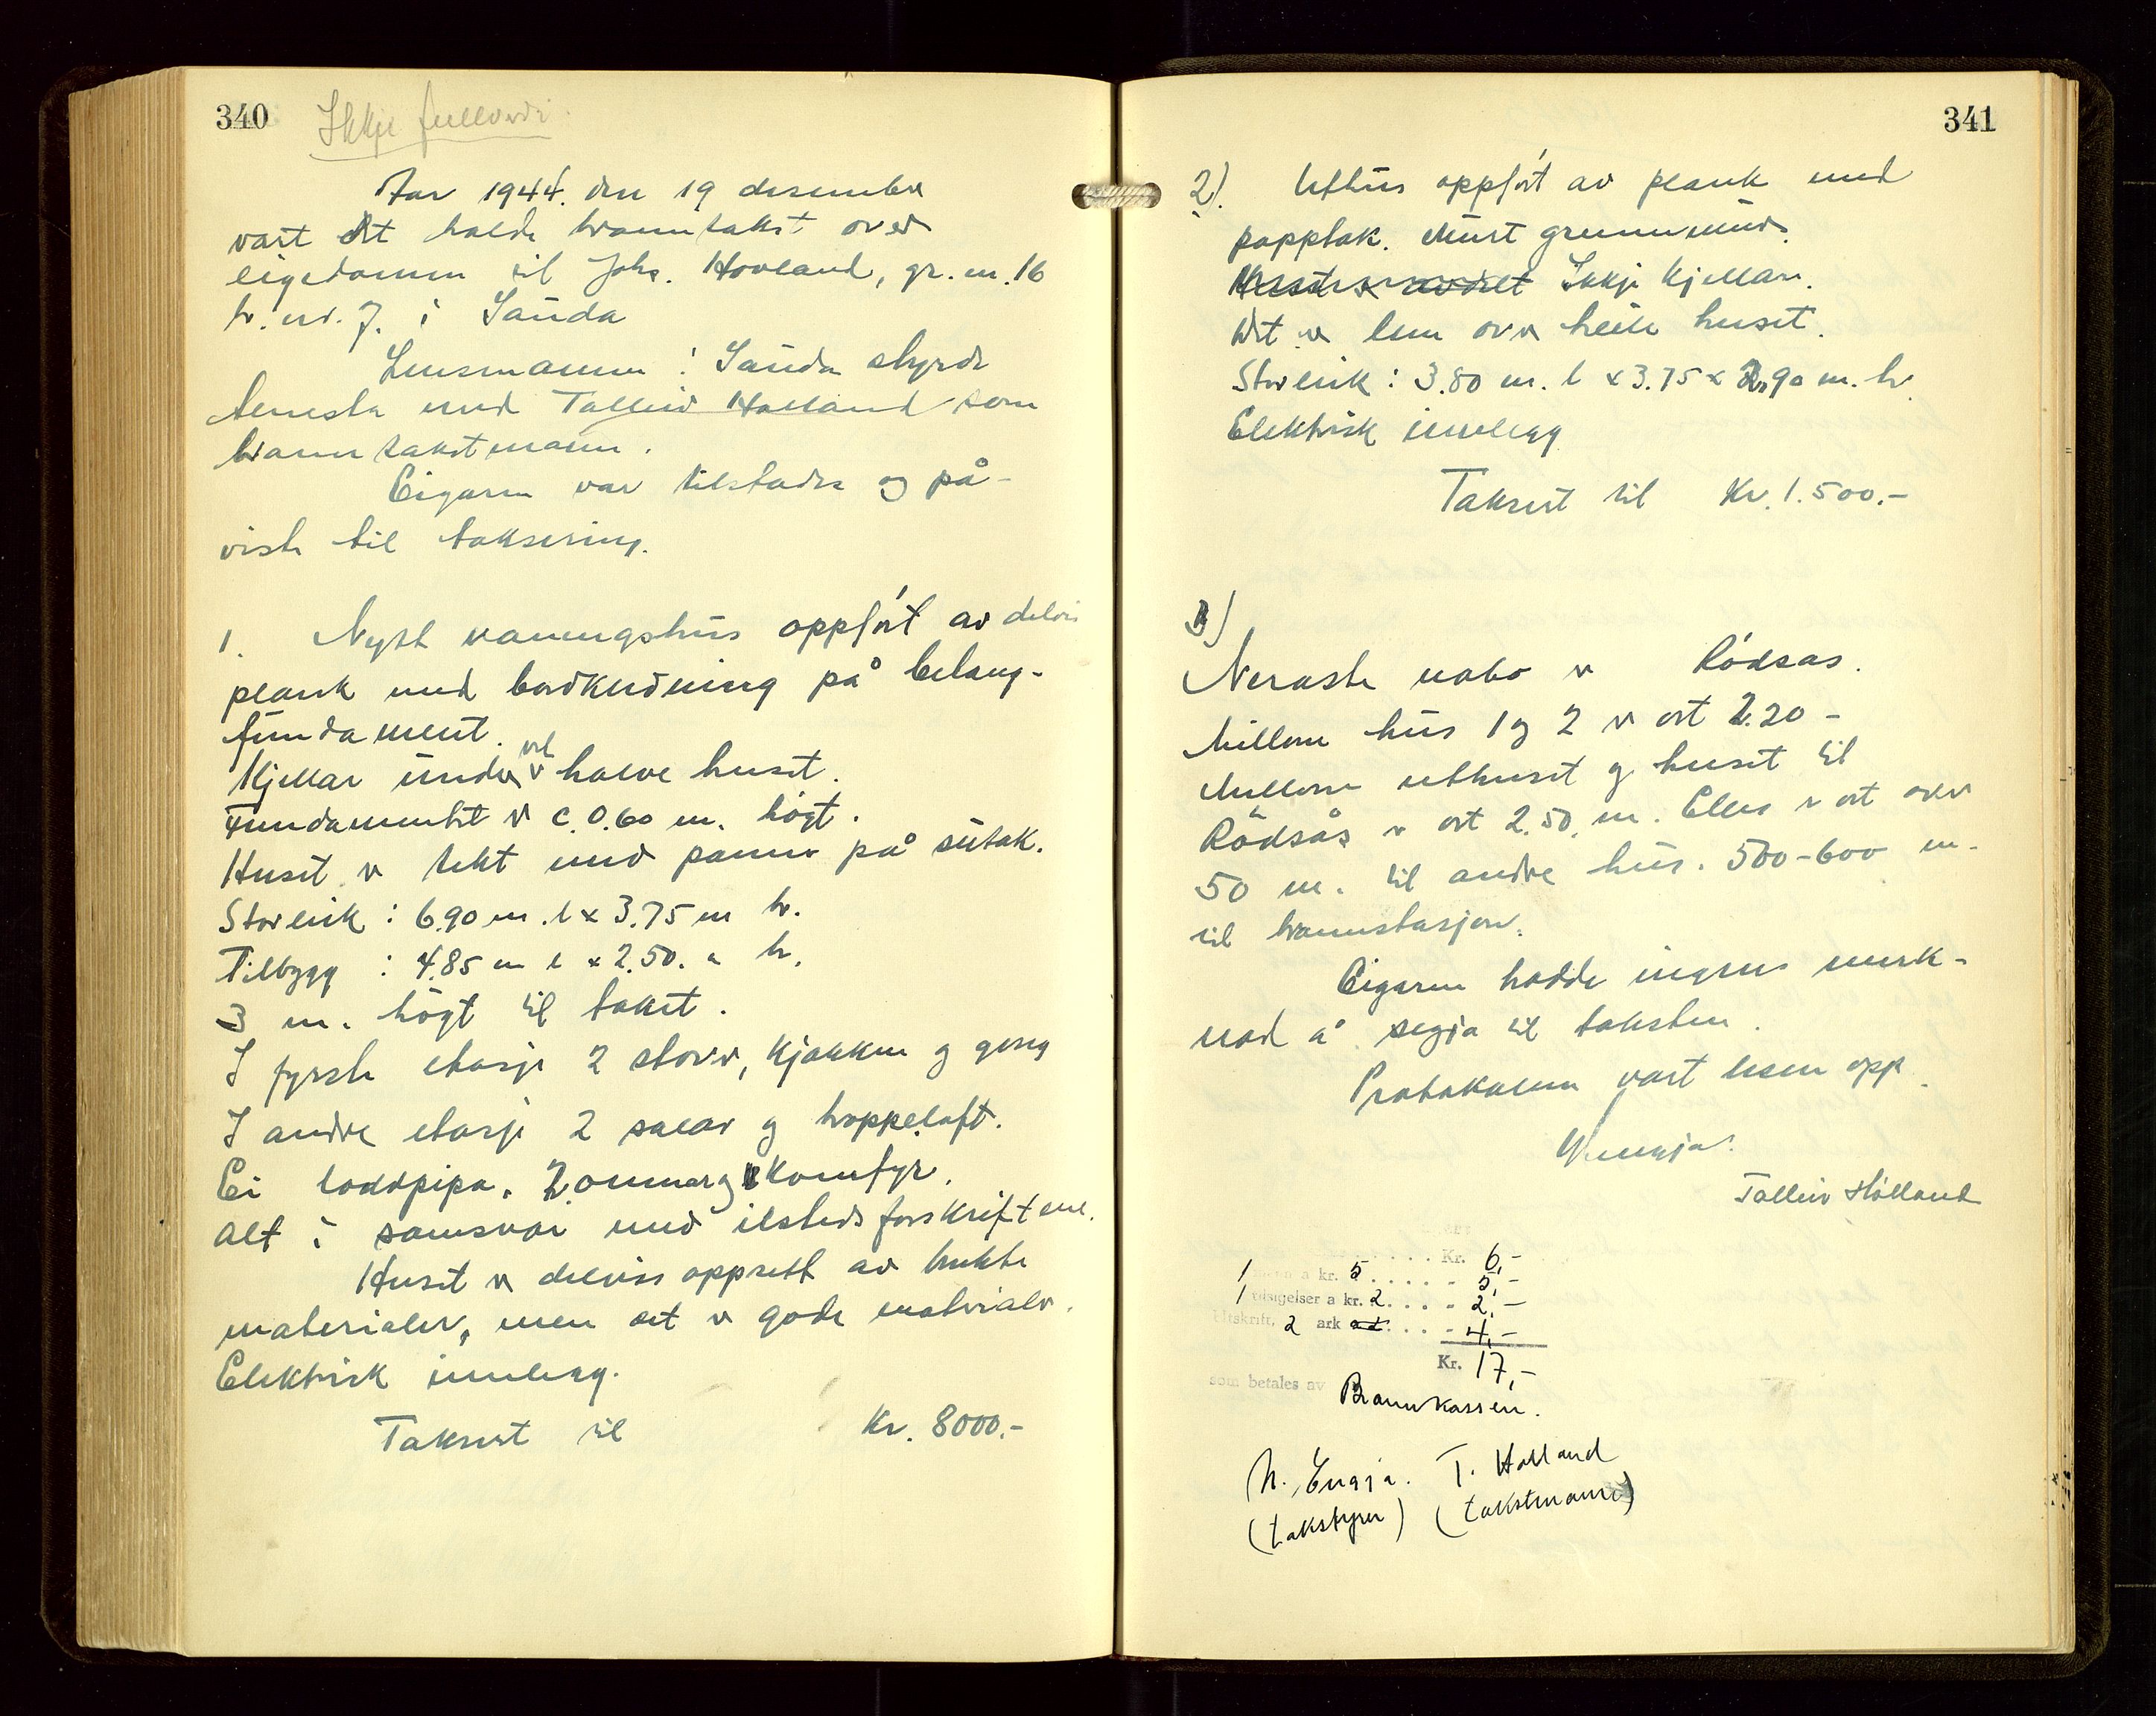 340
Ikkje fullverdi
Aar 1944. den 19 desember
vart det halde branntakst over
eigedomen til Johs. Hovland, gr. nr. 16
br. nr. 7. i Sauda
Lensmannen i Sauda styrde
tenesta med Talleiv Holland som
branntakstmann.
Eigaren var tilstades og på-
viste til taksering.
1. Nytt vaaningshus oppført av delvis
plank med bordkledning på betong-
fundament.
Kjellar under vel halve huset.
Fundamentet er c. 0.60 m. högt.
Huset er tekt med panner på sutak.
Storleik: 6.90 m. l x 3.75 m br.
Tilbygg: 4.85 m l x 2.50. " br.
3 m. högt til taket.
I fyrste etasje 2 stover, kjøkken og gang
I andre etasje 2 salar og trappeloft.
Ei loddpipa. 2 omnar og komfyr.
Alt i samsvar med ilstedsforskriftene.
Huset er delviss oppsett av brukte
materialer, men det er gode materialer.
Elektrisk innlegg.
Taksert til Kr. 8000.-
341
2). Uthus oppført av plank med
papptak. Murt grunnmur.
Ikkje kjellar.
Det er lem over heile huset.
Storleik: 3.80 m. l x 3.75 x 2.90 m. br.
Elektrisk innlegg
Taksert til Kr. 1.500.-
3)
Neraste nabo er Rödsås.
Millom hus 1 og 2 er det 2.20 -
Millom uthuset og huset til
Rödsås er det 2.50 m. Elles er det over
50 m. til andre hus. 500-600 m.
til brannstasjon.
Eigaren hadde ingen merk-
nad å segja til taksten.
Protokollen vart lesen opp.
N. Engja.
Talleiv Holland
Kr. 6,-
1 a kr. 5 . . . . - 5,-
1 tilsigelser a kr. 2. . . . - 2,-
Utskrift, 2 ark . . . - 4,-
Kr. 17,-
som betales av Brannkassen.
N. Engja. T. Holland
(takstyrer) (takstmann)